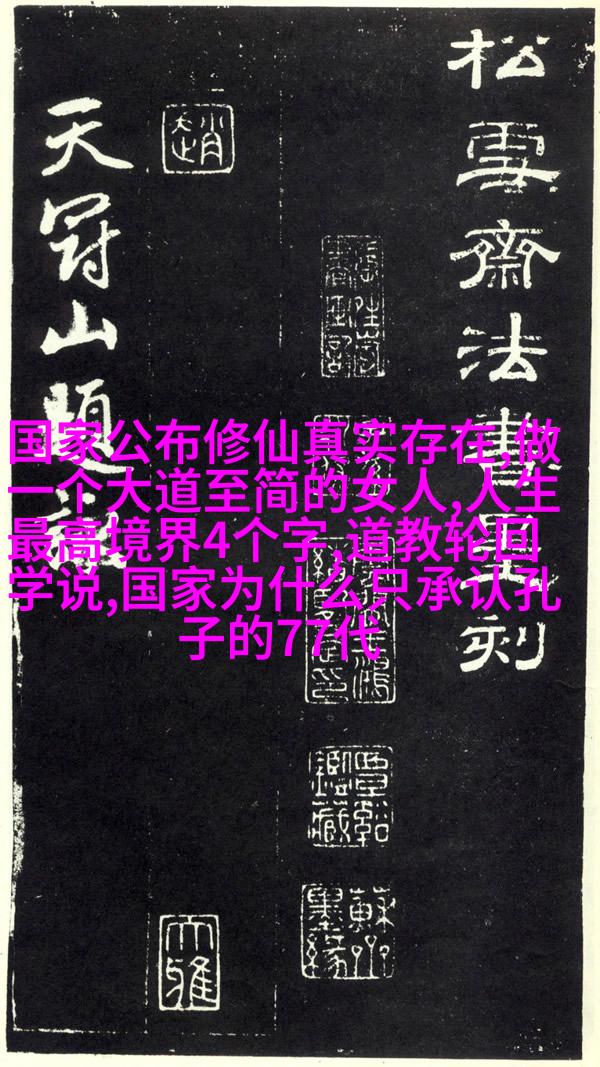 松雪齋法書墨刻
趙
覃谿
鑑藏
大雅
天冠山題
国家公布修仙真实存在,做
一个大道至简的女人,人生
最高境界4个字,道教轮回
学说,国家为什么只承认孔
子的77代